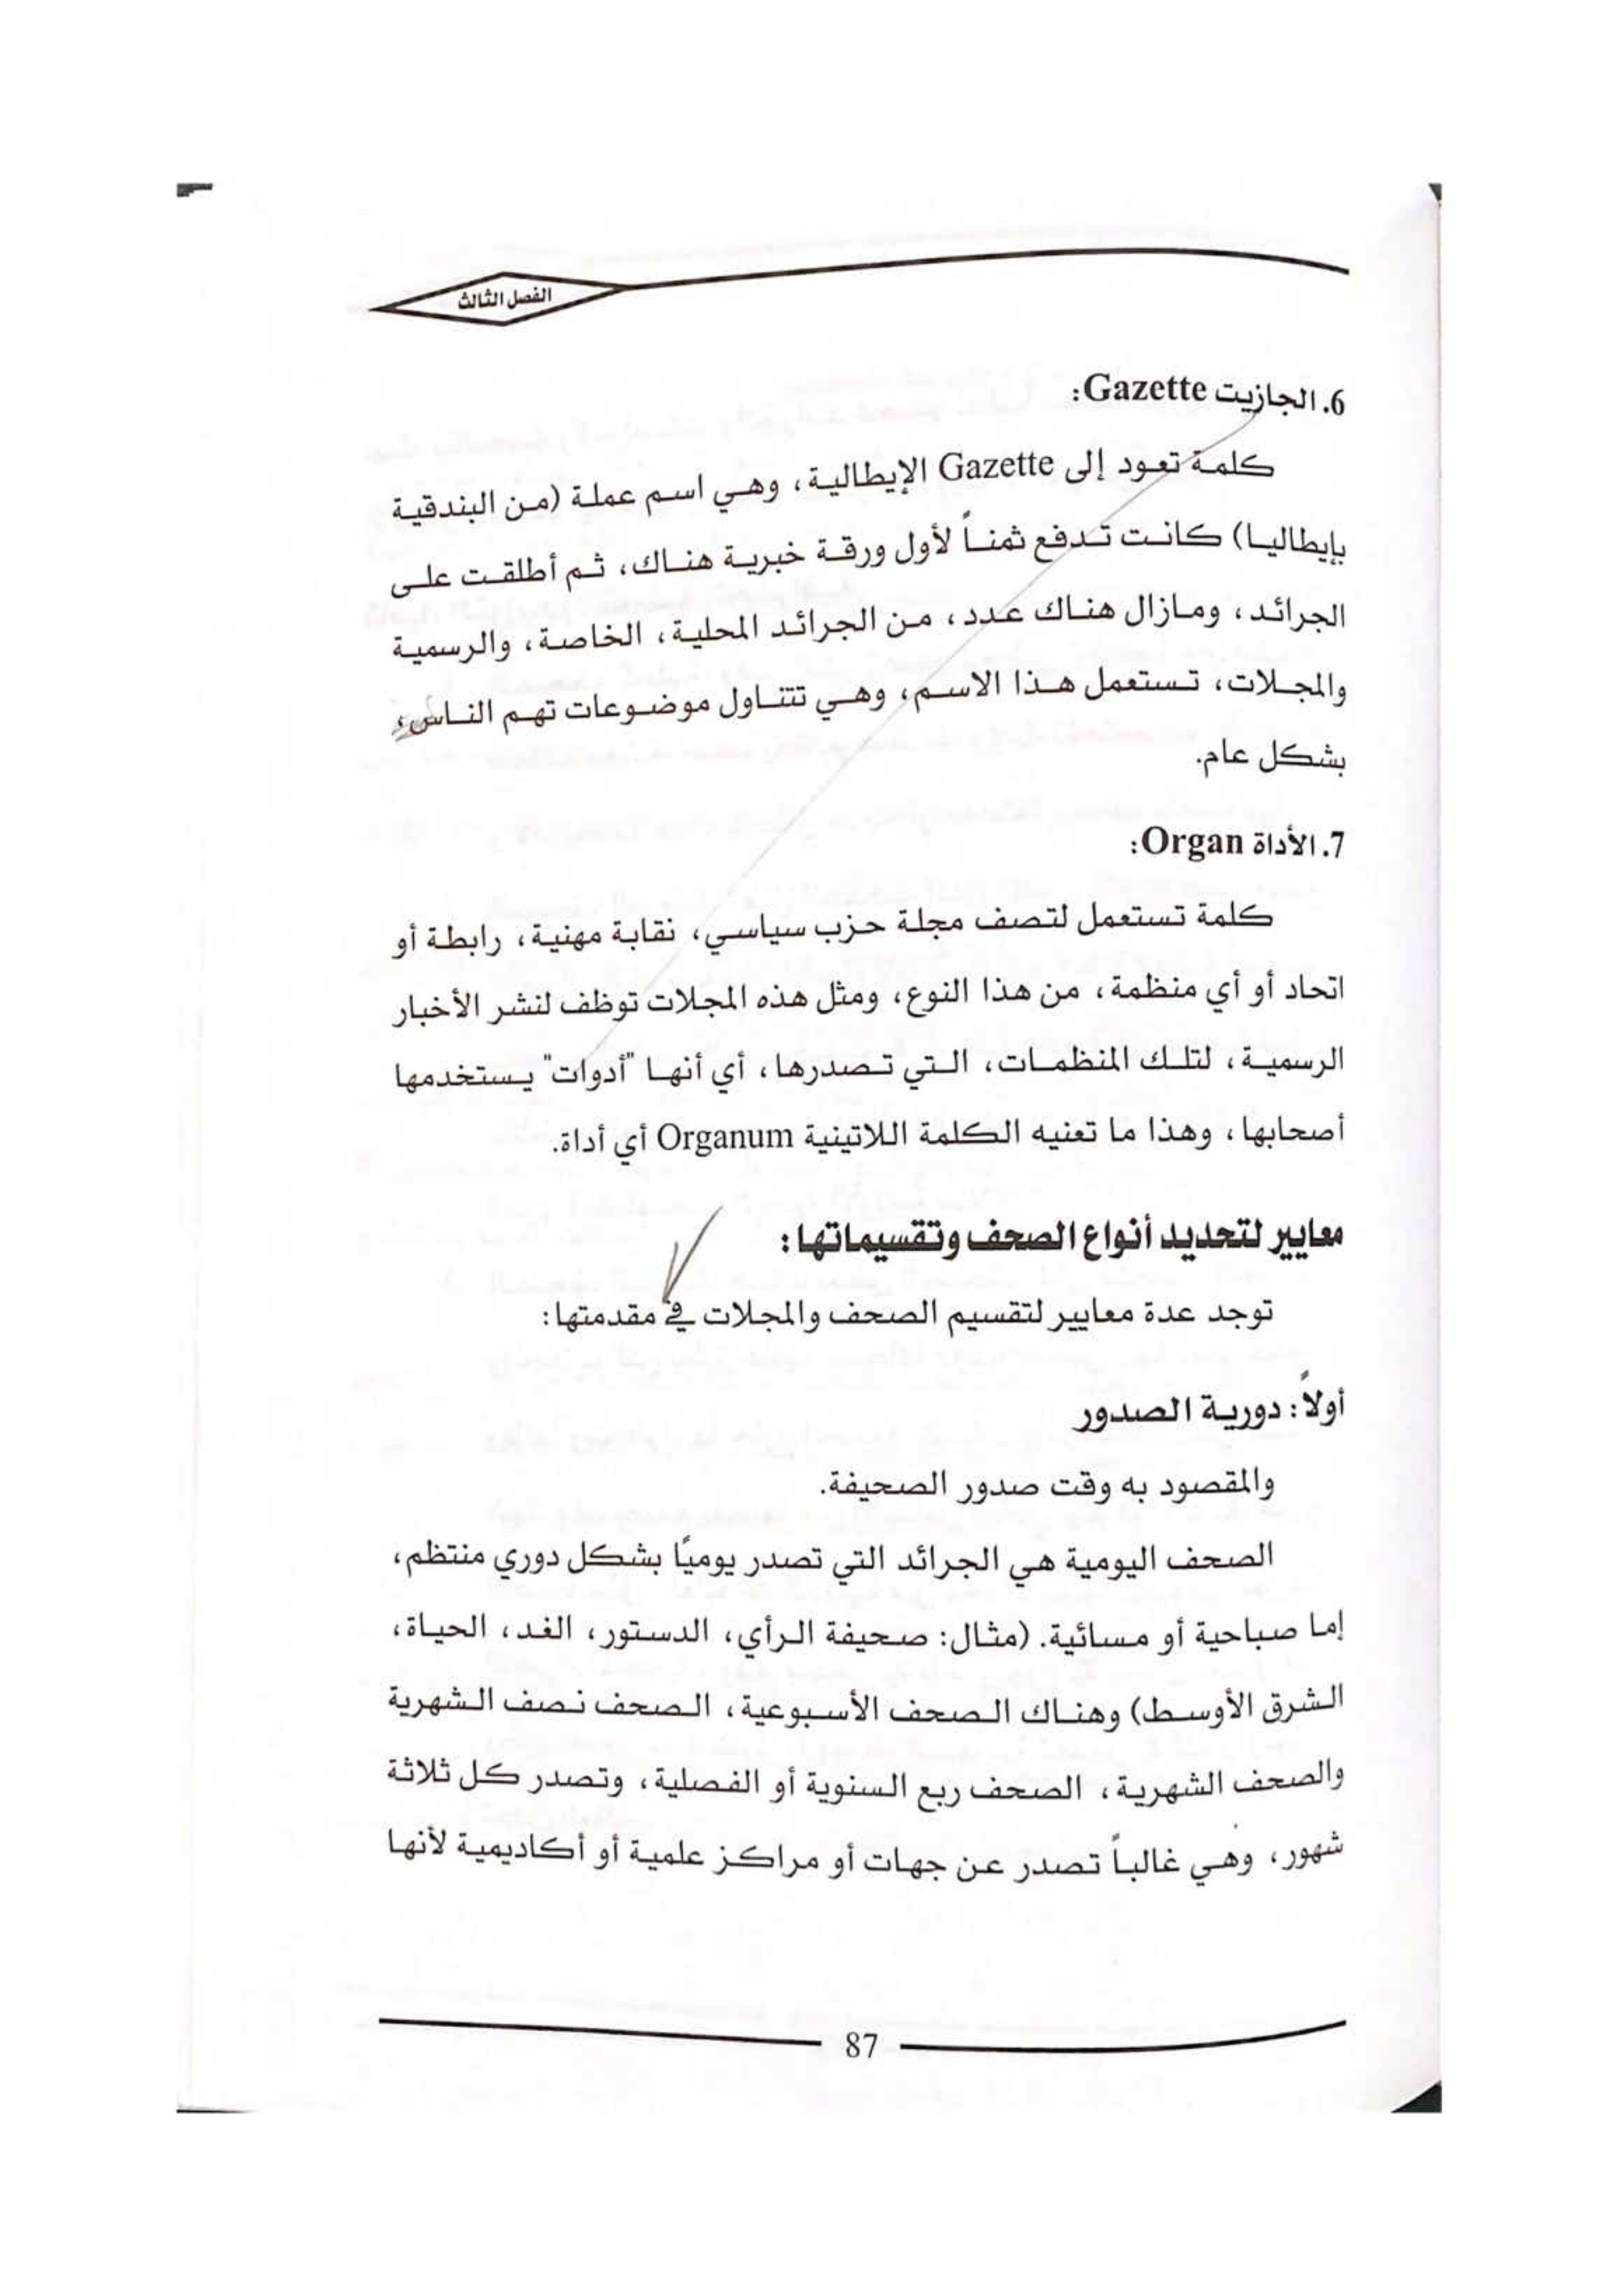 الفصل الثالث
6. الجازيت Gazette:
كلمة تعود إلى Gazette الإيطالية، وهي اسم عملة (من البندقية
بإيطاليا) كانت تدفع ثمناً لأول ورقة خبرية هناك، ثم أطلقت على
الجرائد، ومازال هناك عدد، من الجرائد المحلية، الخاصة، والرسمية
والمجلات، تستعمل هذا الاسم، وهي تتناول موضوعات تهم الناس،
بشكل عام.
7. الأداة Organ:
كلمة تستعمل لتصف مجلة حزب سياسي، نقابة مهنية، رابطة أو
اتحاد أو أي منظمة، من هذا النوع، ومثل هذه المجلات توظف لنشر الأخبار
الرسمية، لتلك المنظمات، التي تصدرها، أي أنها "أدوات" يستخدمها
أصحابها، وهذا ما تعنيه الكلمة اللاتينية Organum أي أداة.
معايير لتحديد أنواع الصحف وتقسيماتها:
توجد عدة معايير لتقسيم الصحف والمجلات في مقدمتها:
أولاً: دورية الصدور
والمقصود به وقت صدور الصحيفة.
الصحف اليومية هي الجرائد التي تصدر يوميًا بشكل دوري منتظم،
إما صباحية أو مسائية. (مثال: صحيفة الرأي، الدستور، الغد، الحياة،
الشرق الأوسط) وهناك الصحف الأسبوعية، الصحف نصف الشهرية
والصحف الشهرية، الصحف ربع السنوية أو الفصلية، وتصدر كل ثلاثة
شهور، وهي غالباً تصدر عن جهات أو مراكز علمية أو أكاديمية لأنها
87